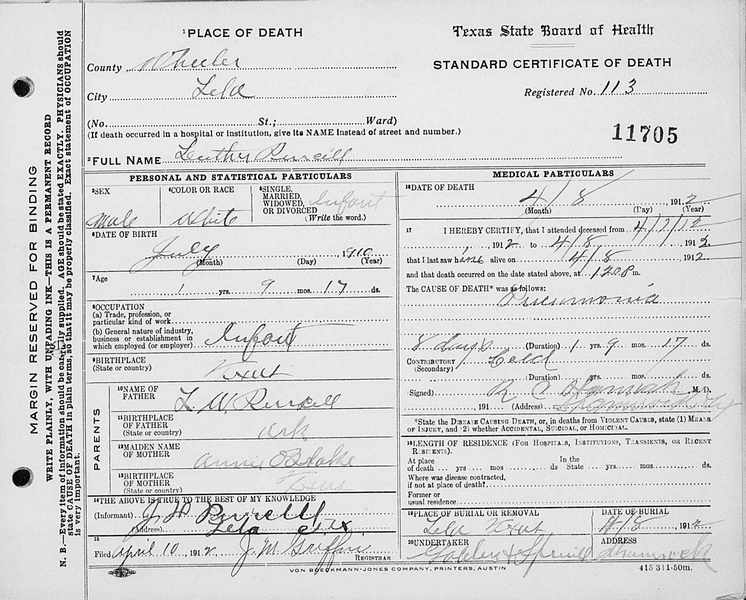 MARGIN RESERVED FOR BINDING
WRITE PLAINLY, WITH UNFADING INK—THIS IS A PERMANENT RECORD
N. B.—Every item of information should be carefully supplied. AGE should be stated EXACTLY. PHYSICIANS should
state CAUSE OF DEATH in plain terms, so that it may be properly classified. Exact statement of OCCUPATION
is very important.
1PLACE OF DEATH
County Wheeler
City Lela
(No. St.; Ward)
(If death occurred in a hospital or institution, give its NAME instead of street and number.)
2FULL NAME Luther
Texas State Board of Health
STANDARD CERTIFICATE OF DEATH
Registered No. 113
11705
PERSONAL AND STATISTICAL PARTICULARS
3SEX
Male
4COLOR OR RACE
White
5SINGLE,
MARRIED,
WIDOWED,
OR DIVORCED
(Write the word.)
Infant
6DATE OF BIRTH
July 1910
(Month) (Day) (Year)
7Age
1 yrs. 9 mos. 17 ds.
8OCCUPATION
(a) Trade, profession, or
particular kind of work
(b) General nature of industry,
business or establishment in
which employed (or employer)
Infant
9BIRTHPLACE
(State or country)
PARENTS
10NAME OF
FATHER
L W
11BIRTHPLACE
OF FATHER
(State or country)
Ark
12MAIDEN NAME
OF MOTHER
Annie Blake
13BIRTHPLACE
OF MOTHER
(State or country)
Texas
14THE ABOVE IS TRUE TO THE BEST OF MY KNOWLEDGE
(Informant)
(Address) Lela Tx
15
Filed April 10 1912 J. M. Griffin
REGISTRAR
MEDICAL PARTICULARS
16DATE OF DEATH
4/8 1912
(Month) (Day) (Year)
17 I HEREBY CERTIFY, that I attended deceased from 4/2/12
, 1912 to 4/8 1912
that I saw him alive on 4/8 1912
and that death occurred on the date stated above, at m.
The CAUSE OF DEATH* was as follows:
Pneumonia
8 days (Duration) 1 yrs. 9 mos. 17 ds.
CONTRIBUTORY Cold
(Duration) yrs. mos. ds.
Signed) M. D.
, 191 (Address)
*State the DISEASE CAUSING DEATH, or, in deaths from VIOLENT CAUSES, state (1) MEANS
OF INJURY, and (2) whether ACCIDENTAL, SUICIDAL or HOMICIDAL.
18LENGTH OF RESIDENCE (FOR HOSPITALS, INSTITUTIONS, TRANSIENTS, OR RECENT
RESIDENTS).
At place
of death yrs mos ds State yrs mos ds.
Where was disease contracted,
if not at place of death?
Former or
usual residence
19PLACE OF BURIAL OR REMOVAL
Lela
DATE OF BURIAL
4/8 1912
20UNDERTAKER
ADDRESS
Shamrock
VON BOECKMANN-JONES COMPANY, PRINTERS, AUSTIN
415 311-50m.